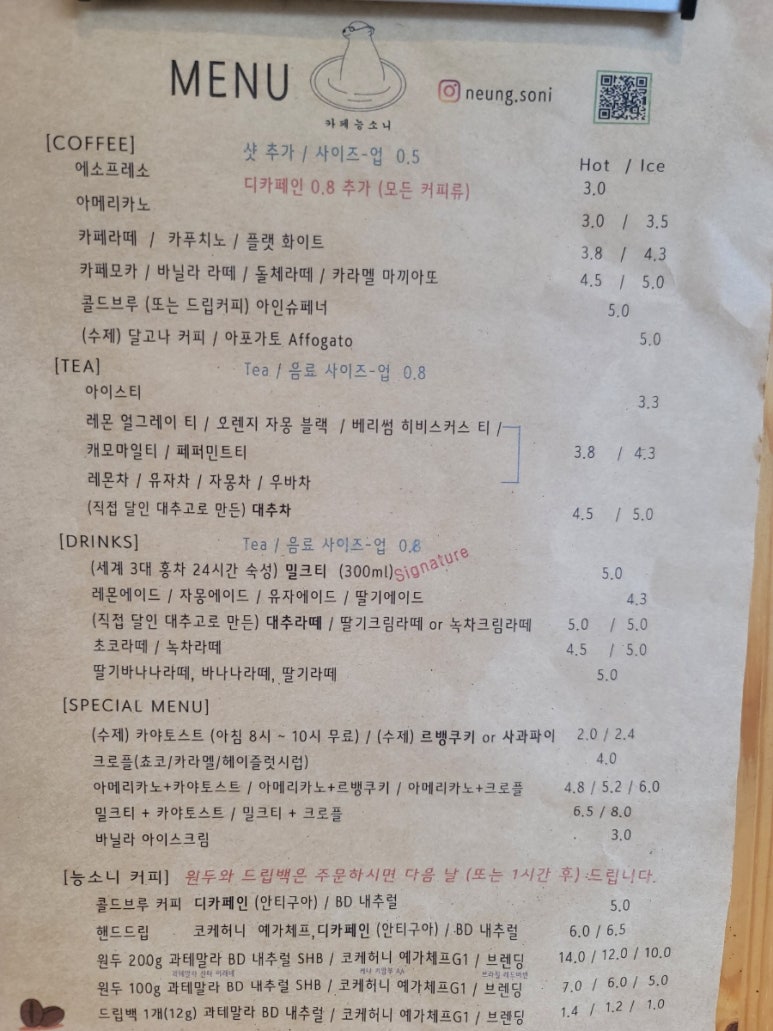 MENU
카페능소니
neung.soni
[COFFEE]
샷 추가 / 사이즈-업 0.5
Hot / Ice
에소프레소 3.0
디카페인 0.8 추가 (모든 커피류)
아메리카노 3.0 / 3.5
카페라떼 / 카푸치노 / 플랫 화이트 3.8 / 4.3
카페모카 / 바닐라 라떼 / 돌체라떼 / 카라멜 마끼아또 4.5 / 5.0
콜드브루 (또는 드립커피) 아인슈페너 5.0
(수제) 달고나 커피 / 아포가토 Affogato 5.0
[TEA] Tea / 음료 사이즈-업 0.8
아이스티 3.3
레몬 얼그레이 티 / 오렌지 자몽 블랙 / 베리썸 히비스커스 티 /
캐모마일티 / 페퍼민트티 3.8 / 4.3
레몬차 / 유자차 / 자몽차 / 우바차
(직접 달인 대추고로 만든) 대추차 4.5 / 5.0
[DRINKS] Tea / 음료 사이즈-업 0.8
(세계 3대 홍차 24시간 숙성) 밀크티 (300ml) Signature 5.0
레몬에이드 / 자몽에이드 / 유자에이드 / 딸기에이드 4.3
(직접 달인 대추고로 만든) 대추라떼 / 딸기크림라떼 or 녹차크림라떼 5.0 / 5.0
초코라떼 / 녹차라떼 4.5 / 5.0
딸기바나나라떼, 바나나라떼, 딸기라떼 5.0
[SPECIAL MENU]
(수제) 카야토스트 (아침 8시 ~ 10시 무료) / (수제) 르뱅쿠키 or 사과파이 2.0 / 2.4
크로플(쵸코/카라멜/헤이즐럿시럽) 4.0
아메리카노+카야토스트 / 아메리카노+르뱅쿠키 / 아메리카노+크로플 4.8 / 5.2 / 6.0
밀크티 + 카야토스트 / 밀크티 + 크로플 6.5 / 8.0
바닐라 아이스크림 3.0
[능소니 커피] 원두와 드립백은 주문하시면 다음 날 (또는 1시간 후) 드립니다.
콜드브루 커피 디카페인 (안티구아) / BD 내추럴 5.0
핸드드립 코케허니 예가체프,디카페인 (안티구아) / BD 내추럴 6.0 / 6.5
원두 200g 과테말라 BD 내추럴 SHB / 코케허니 예가체프G1 / 브렌딩 14.0 / 12.0 / 10.0
원두 100g 과테말라 BD 내추럴 SHB / 코케허니 예가체프G1 / 브렌딩 7.0 / 6.0 / 5.0
드립백 1개(12g) 과테말라 BD 내추럴 SHB / 코케허니 예가체프G1 / 브렌딩 1.4 / 1.2 / 1.0